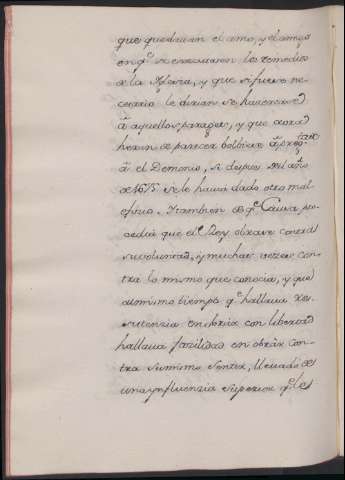 que quedauan el amo, y el amigo
en q.e se executasen los remedios
de la Yglesia, y que si fuese ne-
cesario le dirian se hauerse de
â aquellos parages, y que
de parecer bolbiese â preg.tarle
â el Demonio, si despues del año
de 1675 se le hauia dado otro mal-
eficio. Y tambien de q.e Causa pro-
cedia que el Rey obrase contra
su voluntad, y muchas vezes con-
tra lo mismo que conocia, y que
al mismo tiempo q.e hallaua re-
sistenzia en obrar con libertad
hallaua facilidad en obrar con-
tra su mismo sentir, lleuado de
una ynfluenzia superior q.e le